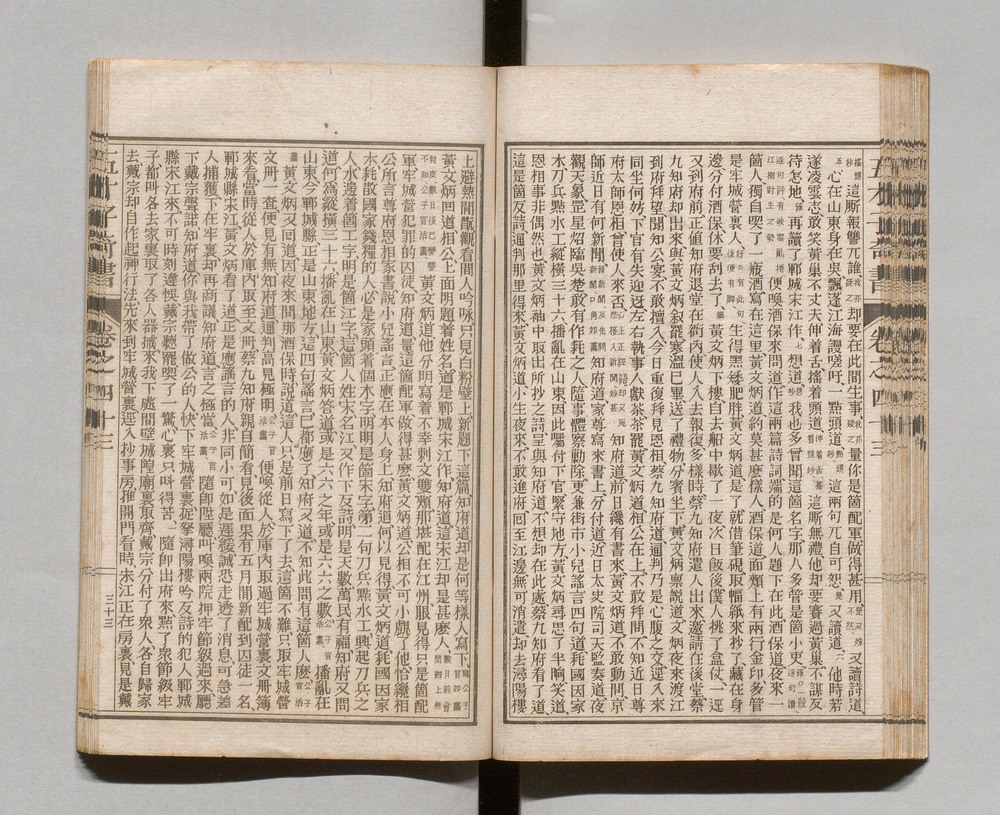 這廝報讐兀誰卻要在此間生事量你是箇配軍做得甚用又讀詩道
心在山東身在吳飄蓬江海謾嗟吁點頭道這兩句兀自可恕又讀道他時若
遂凌雲志敢笑黃巢不丈夫伸着舌搖着頭道這廝無禮他却要賽過黃巢不謀反
待怎地再讀了鄆城宋江作想道我也多曾聞這箇名字那人多管是箇小吏
便喚酒保來問道作這兩篇詩詞端的是何人題下在此酒保道夜來一
箇人獨自喫了一瓶酒寫在這里黃文炳道約莫甚麼樣人酒保道面頰上有兩行金印多管
是牢城營裏人生得黑矮肥胖黃文炳道是了就借筆硯取幅紙來抄了藏在身
邊分付酒保休要刮去了黃文炳下樓自去船中歇了一夜次日飯後僕人挑了盒仗一逕
又到府前正值知府退堂在衙內使人入去報復多樣時蔡九知府遣人出來邀請在後堂
九知府却出來與黃文炳叙罷寒溫已畢送了禮物分賓坐下黃文炳稟說道文炳夜來渡江
到府拜望聞知公宴不敢擅入今日重復拜見恩相蔡九知府道通判乃是心腹之交逕入來
同坐何妨下官有失迎迓左右執事人獻茶茶罷黃文炳道相公在上不敢拜問不知近日尊
府太師恩相曾使人來否知府道前日纔有書來黃文炳道不敢動問京
師近日有何新聞知府道家尊寫來書上分付道近日太史院司天監奏道夜
觀天象罡星炤臨吳楚敢有作耗之人隨事體察勦除更兼街市小兒謠言四句道耗國因家
木刀兵點水工縱橫三十六播亂在山東因此囑付下官緊守地方黃文炳尋思了半晌笑道
恩相事非偶然也黃文炳袖中取出所抄之詩呈與知府道不想却在此處蔡九知府看了道
這是箇反詩通判那里得來黃文炳道小生夜來不敢進府回至江邊無可消遣却去潯陽樓
五才子奇書
卷之四十三
上避熱閒翫觀看閒人吟咏只見白粉壁上新題下這篇知府道却是何等樣人寫下
黃文炳回道相公上面明題着姓名道是鄆城宋江作知府道這宋江却是甚麼人
黃文炳道他分明寫着不幸刺文雙頰那堪配在江州眼見得只是箇配
軍牢城營犯罪的囚徒知府道量這箇配軍做得甚麼黃文炳道公相不可小覷了他恰纔相
公所言尊府恩相家書說小兒謠言正應在本人身上知府道何以見得黃文炳道耗國因家
木耗散國家錢糧的人必是家頭着個木字明明是箇宋字第二句刀兵點水工興起刀兵之
人水邊着箇工字明是箇江字這箇人姓宋名江又作下反詩明是天數萬民有福知府又問
道何爲縱橫三十六播亂在山東黃文炳答道或是六六之年或是六六之數播亂在
山東今鄆城縣正是山東地方這四句謠言已都應了知府又道不知此間有這箇人麼
黃文炳又回道因夜來問那酒保時說道這人只是前日寫下了去這箇不難只取牢城營
文册一查便見有無知府道通判高見極明便喚從人於庫內取過牢城營裏文册簿
來看當時從人於庫內取至文册蔡九知府親自簡看見後面果有五月間新配到囚徒一名
鄆城縣宋江黃文炳看了道正是應謠言的人非同小可如是遲緩誠恐走透了消息可急差
人捕獲下在牢裏却再商議知府道言之極當隨即陞廳叫喚兩院押牢節級過來廳
下戴宗聲諾知府道你與我帶了做公的人快下牢城營裏捉拏潯陽樓吟反詩的犯人鄆城
縣宋江來不可時刻違悞戴宗聽罷喫了一驚心裏只叫得苦隨即出府來點了衆節級牢
子都叫各去家裏取了各人器械來我下處間壁城隍廟裏取齊戴宗分付了衆人各自歸家
去戴宗却自作起神行法先來到牢城營裏逕入抄事房推開門看時宋江正在房裏見是戴
五才子奇書
卷之四十三
三十三